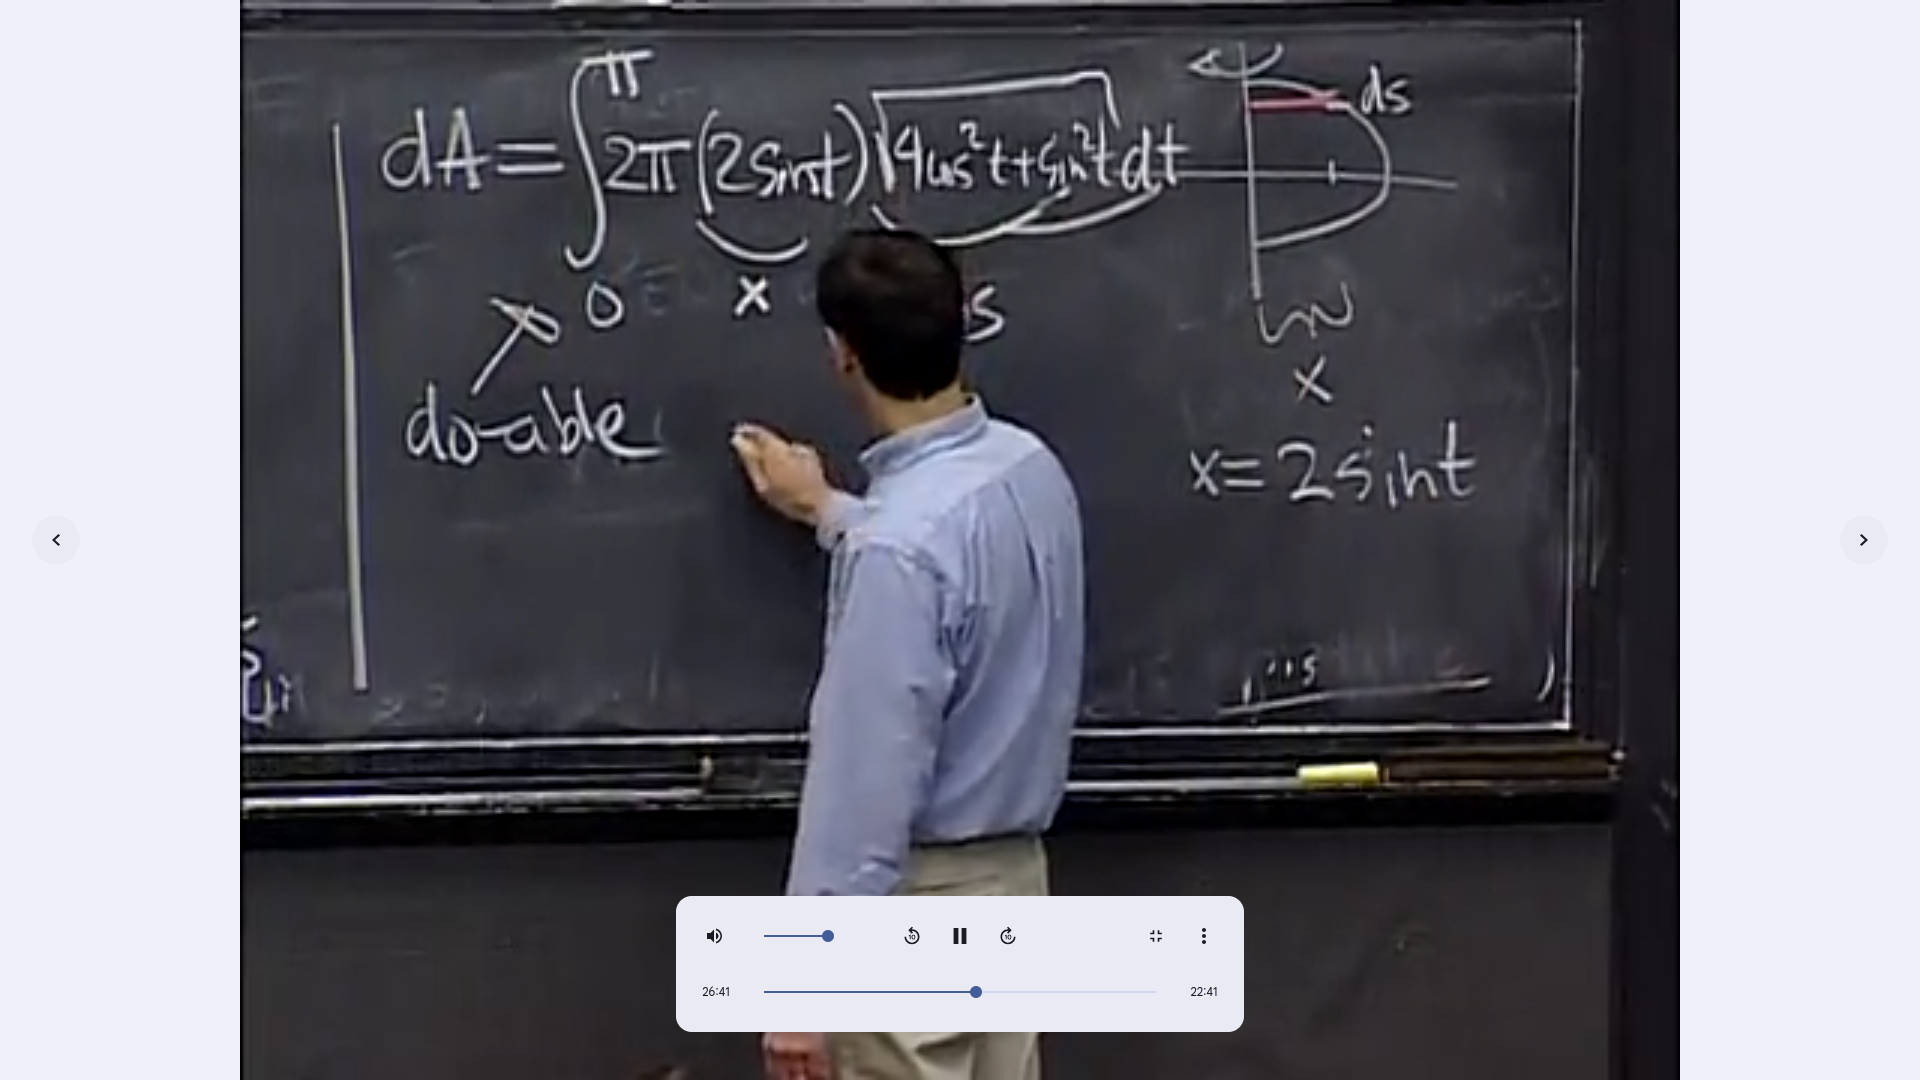 π
dA = ∫ 2π (2 sin t) √4cos²t + sin²t dt
0
x
s
do-able
ds
x
x = 2 sin t
26:41
22:41